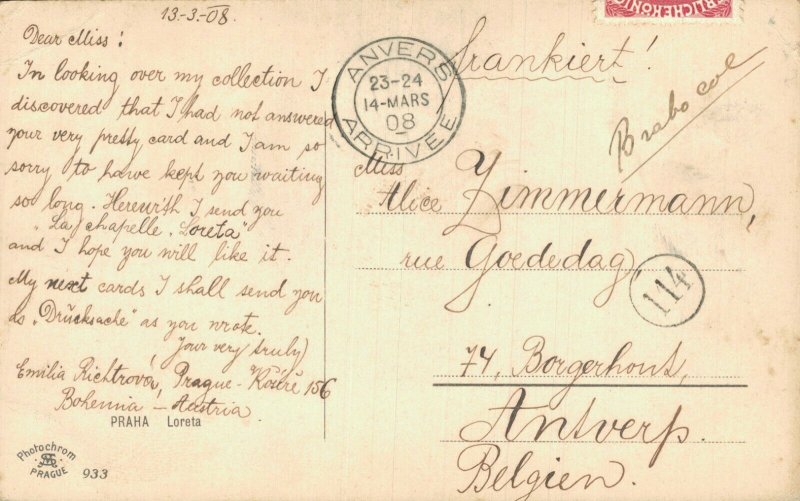 13-3-08.
Dear Miss!
In looking over my collection I
discovered that I had not answered
your very pretty card and I am so
sorry to hawe kept you waiting
so long. Herewith I send you
"La chapelle "Loreta"
and I hope you will like it.
My next cards I shall send you
as "Drücksache" as you wrote.
Your very truly)
Emilia Richtrová, Prague-
156
Bohemia - Austria
PRAHA Loreta
Photochrom
PRAGUE
933
ANVERS
23-24
14-MARS
08
ARRIVEE
frankiert!
Miss
Alice Zimmermann,
rue Goededag,
114
74, Borgerhout,
Antwerp.
Belgien.